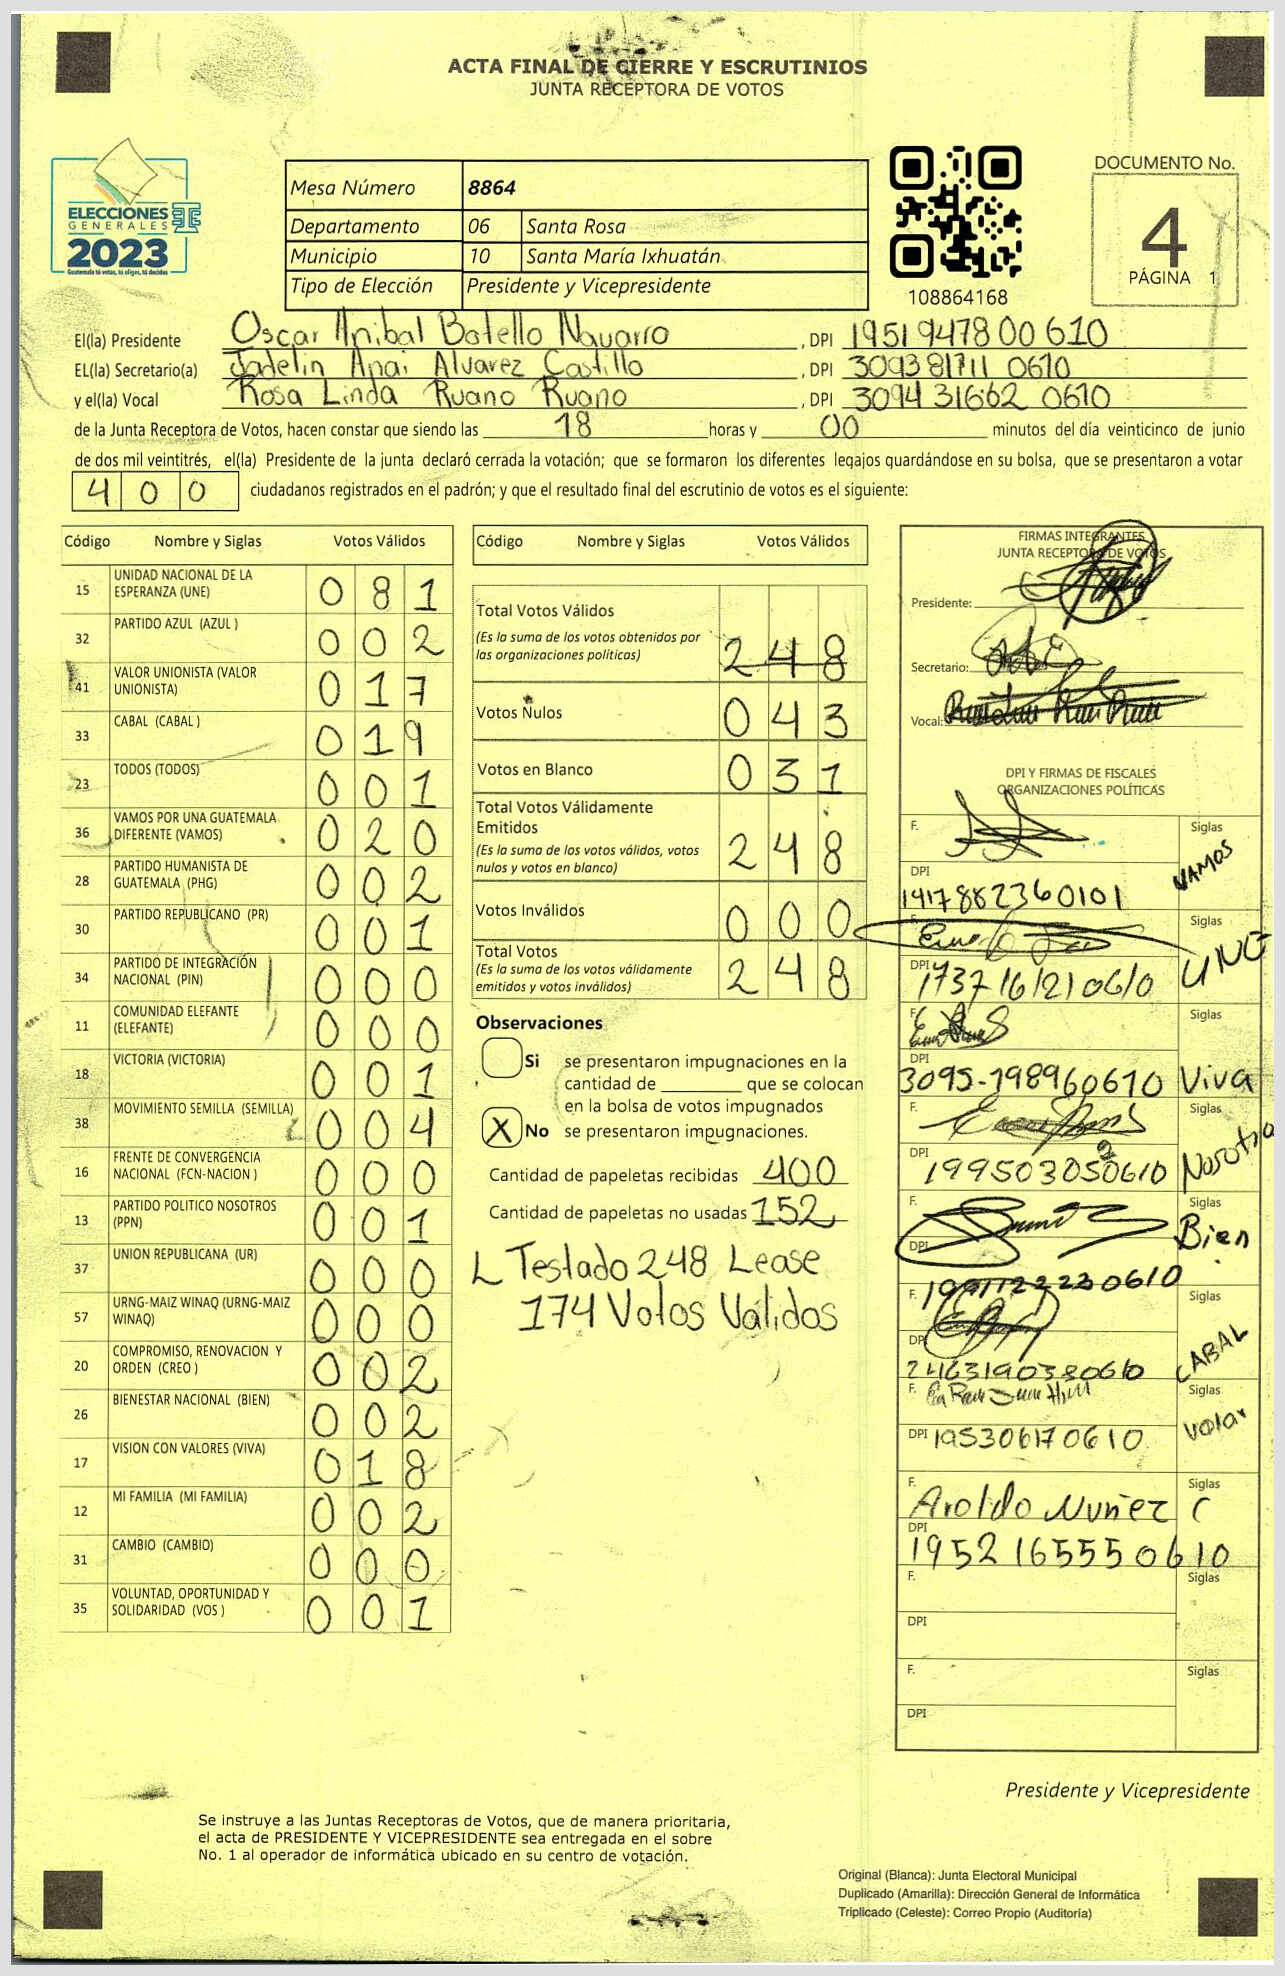 ACTA FINAL DE CIERRE Y ESCRUTINIOS
JUNTA RECEPTORA DE VOTOS
ELECCIONES
GENERALES
2023
Guatemala tú votas, tú eliges, tú decides
Mesa Número 8864
Departamento 06 Santa Rosa
Municipio 10 Santa María Ixhuatán
Tipo de Elección Presidente y Vicepresidente
108864168
DOCUMENTO No.
4
PÁGINA 1
El(la) Presidente Oscar Anibal Botello Navarro, DPI 1951947800610
EL(la) Secretario(a) Jadelin Anai Alvarez Castillo, DPI 309381711 0610
y el(la) Vocal Rosa Linda Ruano Ruano, DPI 3094 31662 0610
de la Junta Receptora de Votos, hacen constar que siendo las 18 horas y 00 minutos del día veinticinco de junio
de dos mil veintitrés, el(la) Presidente de la junta declaró cerrada la votación; que se formaron los diferentes legajos guardándose en su bolsa, que se presentaron a votar
400 ciudadanos registrados en el padrón; y que el resultado final del escrutinio de votos es el siguiente:
Código Nombre y Siglas Votos Válidos
15 UNIDAD NACIONAL DE LA ESPERANZA (UNE) 081
32 PARTIDO AZUL (AZUL ) 002
41 VALOR UNIONISTA (VALOR UNIONISTA) 017
33 CABAL (CABAL ) 019
23 TODOS (TODOS) 001
36 VAMOS POR UNA GUATEMALA DIFERENTE (VAMOS) 020
28 PARTIDO HUMANISTA DE GUATEMALA (PHG) 002
30 PARTIDO REPUBLICANO (PR) 001
34 PARTIDO DE INTEGRACIÓN NACIONAL (PIN) 000
11 COMUNIDAD ELEFANTE (ELEFANTE) 000
18 VICTORIA (VICTORIA) 001
38 MOVIMIENTO SEMILLA (SEMILLA) 004
16 FRENTE DE CONVERGENCIA NACIONAL (FCN-NACION ) 000
13 PARTIDO POLITICO NOSOTROS (PPN) 001
37 UNION REPUBLICANA (UR) 000
57 URNG-MAIZ WINAQ (URNG-MAIZ WINAQ) 000
20 COMPROMISO, RENOVACION Y ORDEN (CREO ) 002
26 BIENESTAR NACIONAL (BIEN) 002
17 VISION CON VALORES (VIVA) 018
12 MI FAMILIA (MI FAMILIA) 002
31 CAMBIO (CAMBIO) 000
35 VOLUNTAD, OPORTUNIDAD Y SOLIDARIDAD (VOS ) 001
Código Nombre y Siglas Votos Válidos
Total Votos Válidos
(Es la suma de los votos obtenidos por
las organizaciones politicas) 248
Votos Nulos 043
Votos en Blanco 031
Total Votos Válidamente
Emitidos
(Es la suma de los votos válidos, votos
nulos y votos en blanco) 248
Votos Inválidos 000
Total Votos
(Es la suma de los votos válidamente
emitidos y votos inválidos) 248
Observaciones
Si se presentaron impugnaciones en la
cantidad de ________ que se colocan
en la bolsa de votos impugnados
X No se presentaron impugnaciones.
Cantidad de papeletas recibidas 400
Cantidad de papeletas no usadas 152
L Testado 248 Lease
174 Votos Válidos
FIRMAS INTEGRANTES
JUNTA RECEPTORA DE VOTOS
Presidente:
Secretario:
Vocal:
DPI Y FIRMAS DE FISCALES
ORGANIZACIONES POLÍTICAS
F. Siglas VAMOS
DPI 1417882360101
F. Siglas UNE
DPI 1737161210610
F. Siglas Viva
DPI 3095-198960610
F. Siglas
DPI
F. Siglas Bien
DPI 1991122230610
F. Siglas CABAL
DPI 2463190380610
F. Siglas
DPI 195306170610
F. Aroldo Nuñez C Siglas
DPI 1952165550610
F. Siglas
DPI
F. Siglas
DPI
Presidente y Vicepresidente
Se instruye a las Juntas Receptoras de Votos, que de manera prioritaria,
el acta de PRESIDENTE Y VICEPRESIDENTE sea entregada en el sobre
No. 1 al operador de informática ubicado en su centro de votación.
Original (Blanca): Junta Electoral Municipal
Duplicado (Amarilla): Dirección General de Informática
Triplicado (Celeste): Correo Propio (Auditoría)